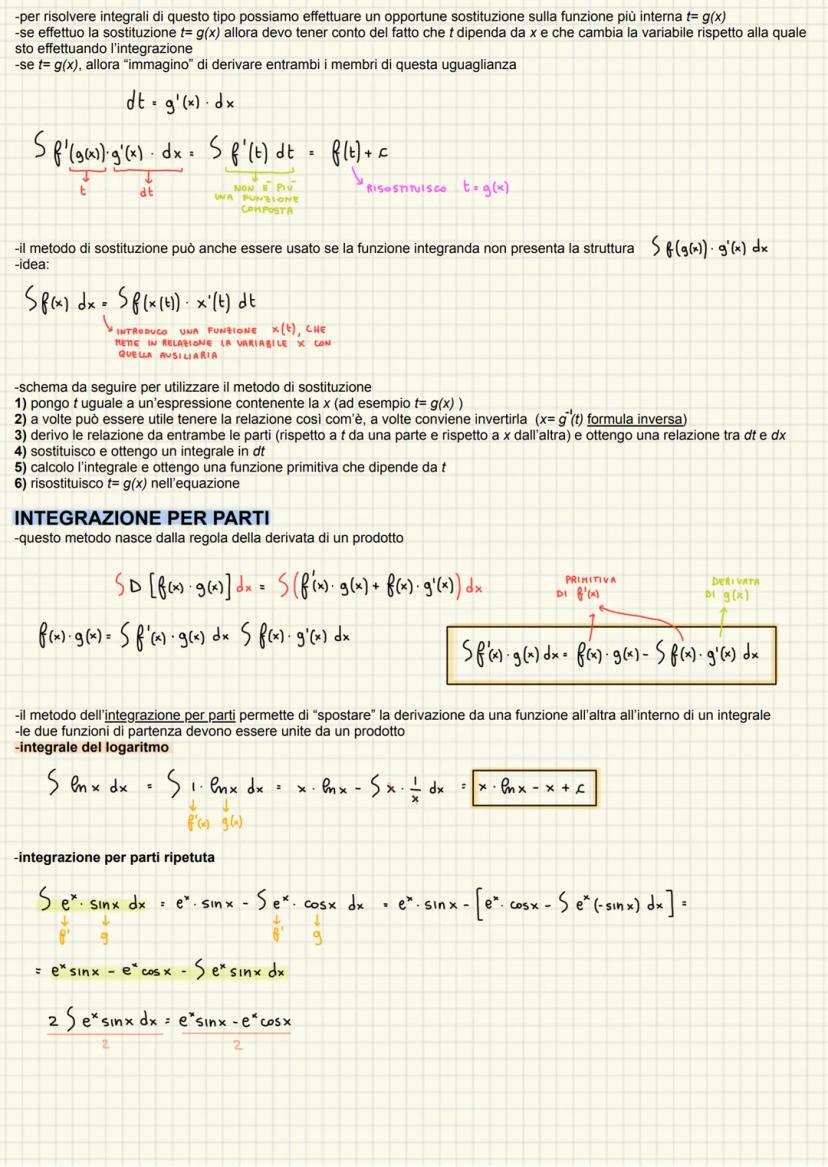 -per risolvere integrali di questo tipo possiamo effettuare un opportune sostituzione sulla funzione più interna t= g(x)
-se effettuo la sostituzione t= g(x) allora devo tener conto del fatto che t dipenda da x e che cambia la variabile rispetto alla quale
sto effettuando l'integrazione
-se t= g(x), allora "immagino" di derivare entrambi i membri di questa uguaglianza
dt = g'(x) · dx
∫ f'(g(x)) · g'(x) · dx = ∫ f'(t) dt = f(t) + c
t dt NON È PIÙ UNA FUNZIONE COMPOSTA RISOSTITUISCO t = g(x)
-il metodo di sostituzione può anche essere usato se la funzione integranda non presenta la struttura ∫ f(g(x)) · g'(x) dx
-idea:
∫ f(x) dx = ∫ f(x(t)) · x'(t) dt
INTRODUCO UNA FUNZIONE x(t), CHE
METTE IN RELAZIONE LA VARIABILE X CON
QUELLA AUSILIARIA
-schema da seguire per utilizzare il metodo di sostituzione
1) pongo t uguale a un'espressione contenente la x (ad esempio t= g(x) )
2) a volte può essere utile tenere la relazione così com'è, a volte conviene invertirla (x= g⁻¹(t) formula inversa)
3) derivo le relazione da entrambe le parti (rispetto a t da una parte e rispetto a x dall'altra) e ottengo una relazione tra dt e dx
4) sostituisco e ottengo un integrale in dt
5) calcolo l'integrale e ottengo una funzione primitiva che dipende da t
6) risostituisco t= g(x) nell'equazione
INTEGRAZIONE PER PARTI
-questo metodo nasce dalla regola della derivata di un prodotto
∫ D [f(x) · g(x)] dx = ∫ (f'(x) · g(x) + f(x) · g'(x)) dx
PRIMITIVA DI f'(x)
DERIVATA DI g(x)
f(x) · g(x) = ∫ f'(x) · g(x) dx ∫ f(x) · g'(x) dx
∫ f'(x) · g(x) dx = f(x) · g(x) - ∫ f(x) · g'(x) dx
-il metodo dell'integrazione per parti permette di "spostare" la derivazione da una funzione all'altra all'interno di un integrale
-le due funzioni di partenza devono essere unite da un prodotto
-integrale del logaritmo
∫ ln x dx = ∫ 1 · ln x dx = x · ln x - ∫ x · 1/x dx = x · ln x - x + c
f'(x) g(x)
-integrazione per parti ripetuta
∫ eˣ · sinx dx = eˣ · sinx - ∫ eˣ · cosx dx = eˣ · sinx - [eˣ · cosx - ∫ eˣ (-sinx) dx] =
f' g f' g
= eˣ sinx - eˣ cosx - ∫ eˣ sinx dx
2 ∫ eˣ sinx dx = eˣ sinx - eˣ cosx
2 2